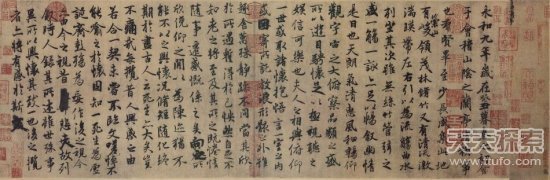 永和九年歲在癸丑暮春之初會
于會稽山陰之蘭亭脩稧事
也群賢畢至少長咸集此地
有崇山峻領茂林脩竹又有清流激
湍暎帶左右引以為流觴曲水
列坐其次雖無絲竹管弦之
盛一觴一詠亦足以暢敘幽情
是日也天朗氣清惠風和暢仰
觀宇宙之大俯察品類之盛
所以遊目騁懷足以極視聽之
娛信可樂也夫人之相與俯仰
一世或取諸懷抱悟言一室之內
或因寄所託放浪形骸之外雖
趣舍萬殊靜躁不同當其欣
於所遇蹔得於己怏然自足不
知老之將至及其所之既惓情
隨事遷感慨係之矣向之所
欣俛仰之閒以為陳跡猶不
能不以之興懷況脩短隨化終
期於盡古人云死生亦大矣豈
不痛哉每攬昔人興感之由
若合一契未嘗不臨文嗟悼不
能喻之於懷固知一死生為虛
誕齊彭殤為妄作後之視今
亦由今之視昔悲夫故列
敘時人錄其所述雖世殊事
異所以興懷其致一也後之攬
者亦將有感於斯文
天天探索
www.ttufo.com